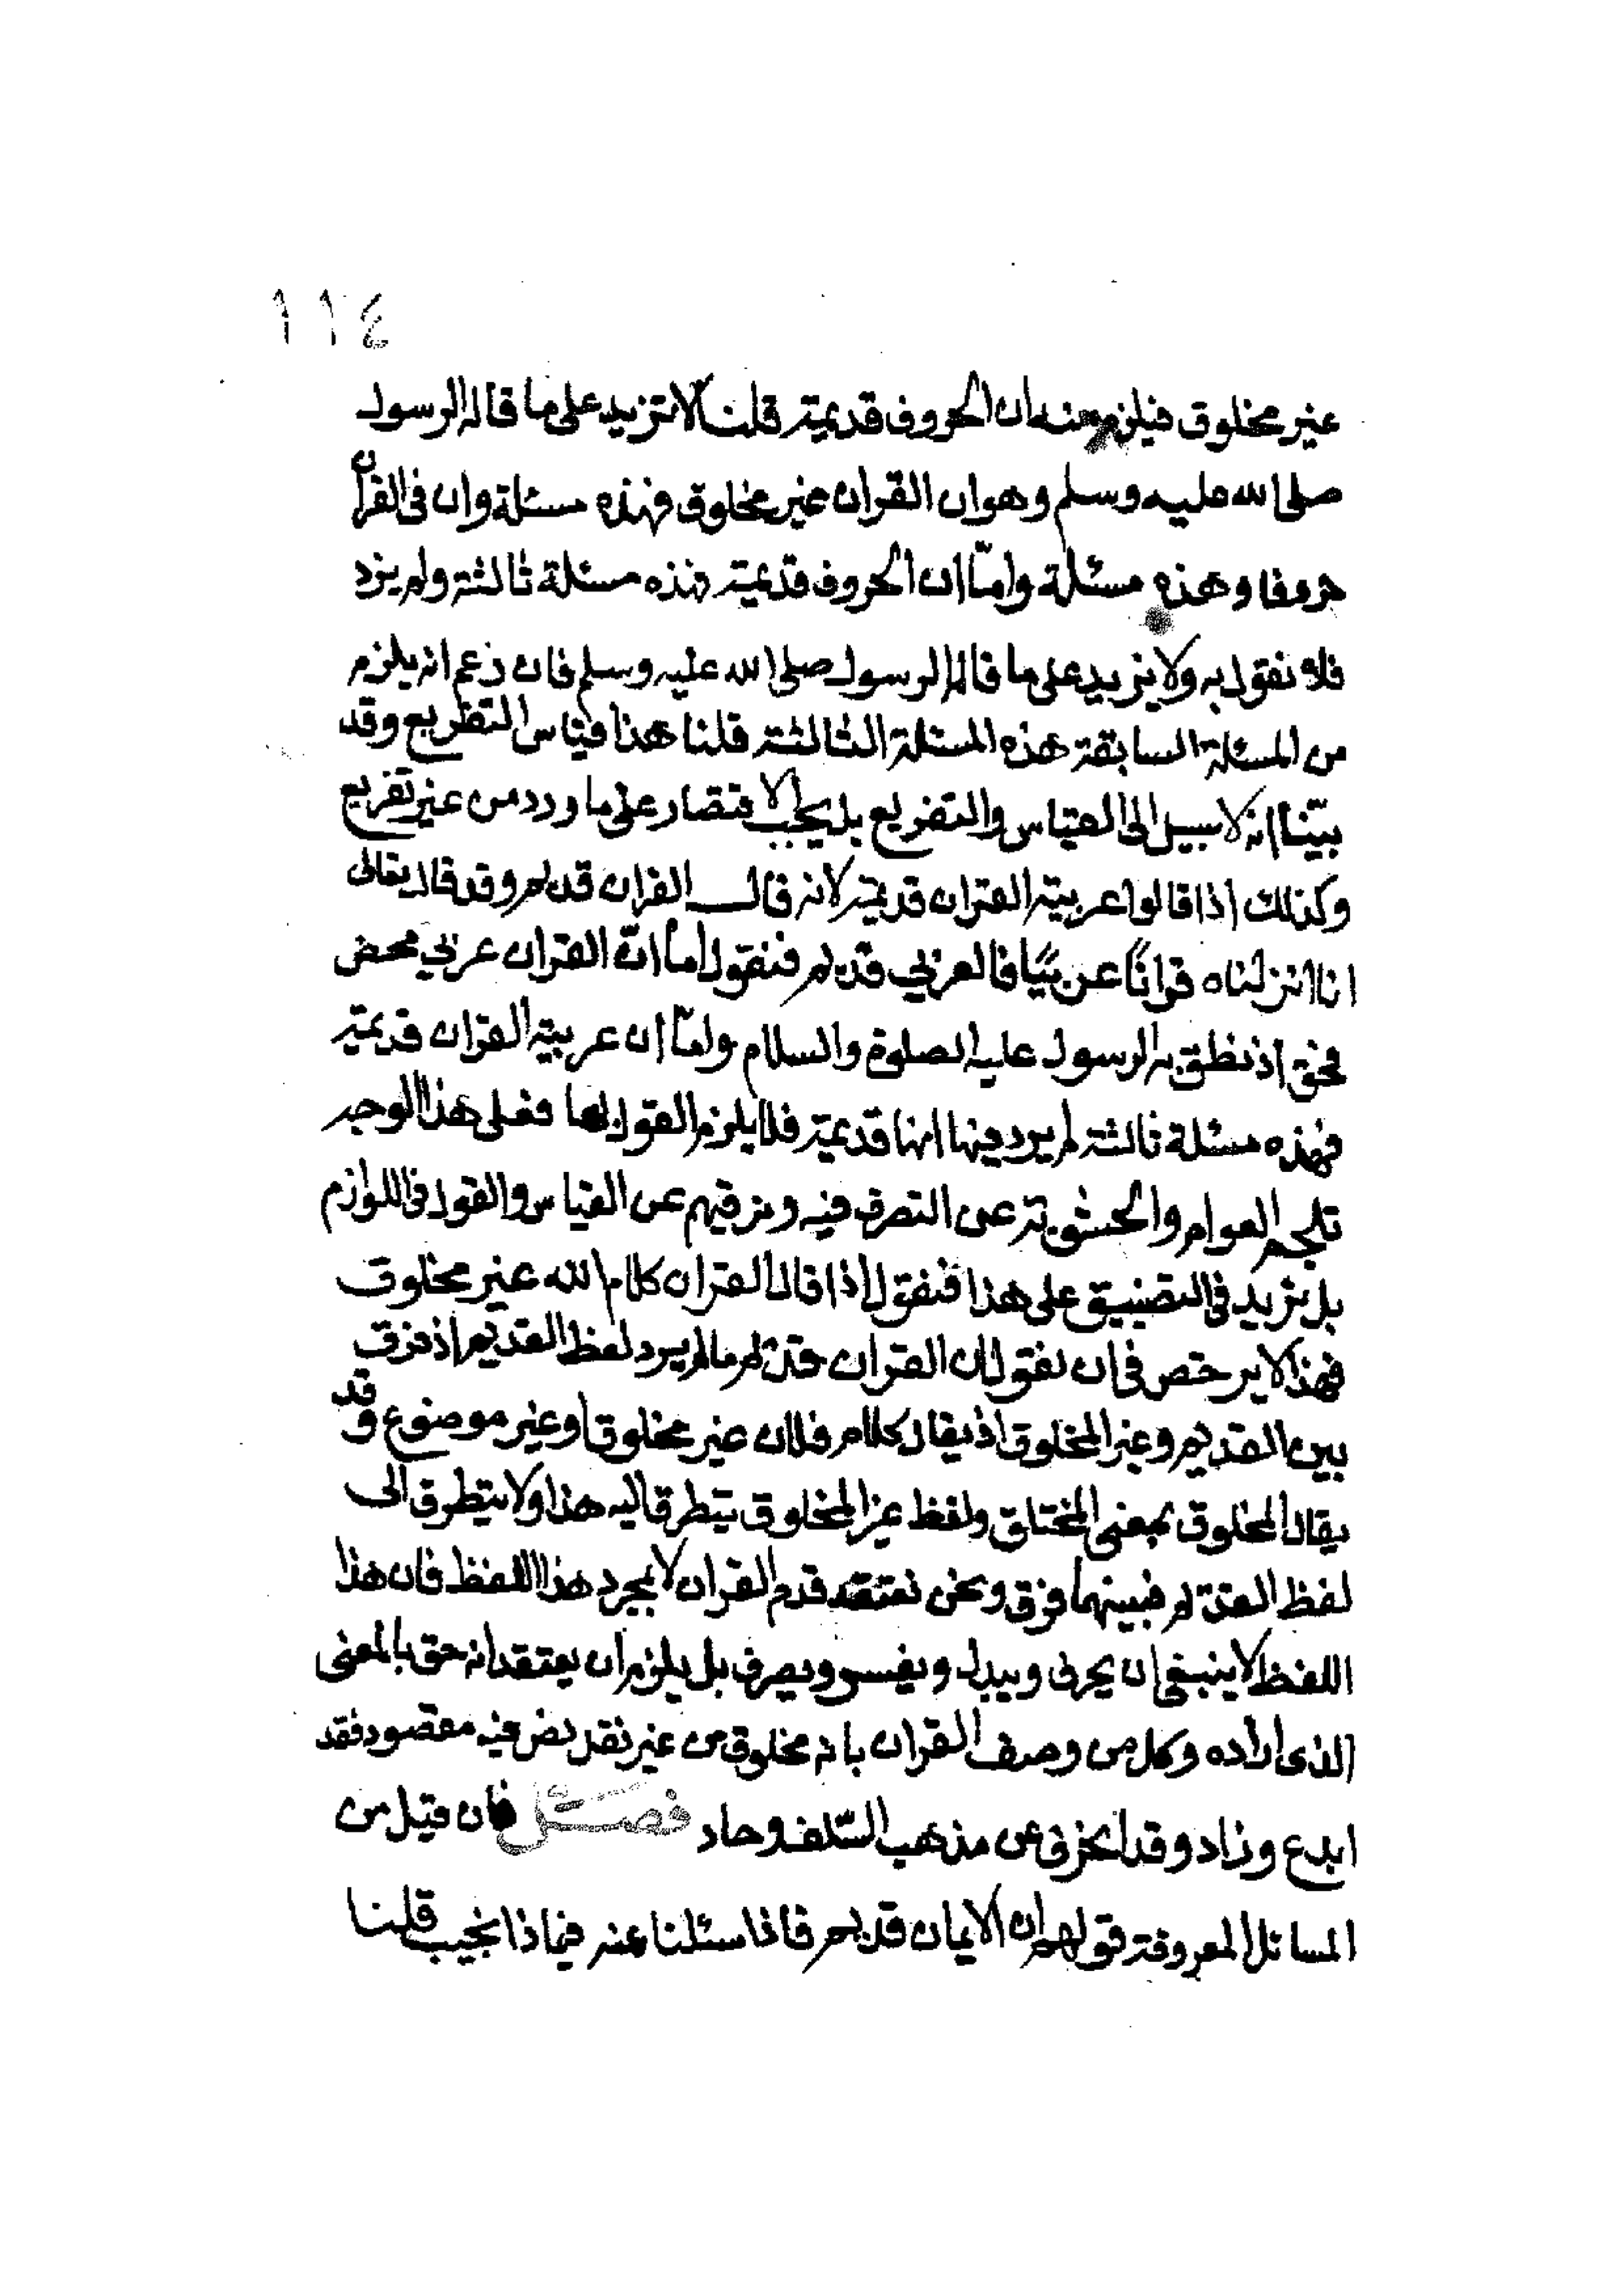 ١١٤
غير مخلوق فيلزم منه ان الحروف قديمة قلنا لا تزيد على ما قاله الرسول
صلى الله عليه وسلم وهو ان القران غير مخلوق فهذه مسئلة وان في القرآن
حروفا وهذه مسئلة وامّا ان الحروف قديمة فهذه مسئلة ثالثة ولم يزد
فلا نقول به ولا يزيد على ما قاله الرسول صلى الله عليه وسلم فان زعم انه يلزم
من المسئلة السابقة هذه المسئلة الثالثة قلنا هذا قياس التفريع وقد
بيّنا انه لا سبيل الى القياس والتفريع بل يجب الاقتصار على ما ورد من غير تفريع
وكذلك اذا قالوا عربية القران قديمة لانه قال القران قديم وقد قال تعالى
انا انزلناه قرانًا عربيًا فالعربي قديم فنقول اما انّ القران عربي محض
فحق اذ نطق به الرسول عليه الصلوة والسلام وامّا ان عربية القران قديمة
فهذه مسئلة ثالثة لم يرد فيها انها قديمة فلا يلزم القول بها فعلى هذا الوجه
تلجم العوام والحشوية عن التصرف فيه ونزقيهم عن القياس والقول في اللوازم
بل نزيد في التضييق على هذا فنقول اذا قال القران كلام الله غير مخلوق
فهذا لا يرخص في ان نقول ان القران قديم ما لم يرد لفظ القديم اذ فرق
بين القديم وغير المخلوق اذ يقال كلام فلان غير مخلوق اوغير موضوع وقد
يقال المخلوق بمعنى المختلق ولفظ غير المخلوق يتطرق اليه هذا ولا يتطرق الى
لفظ القديم فبينهما فرق ونحن نعتقد قدم القران لا بمجرد هذا اللفظ فان هذا
اللفظ لا ينبغي ان يحرف ويبدل ويفسر ويصرف بل يلزم ان يعتقد انه حق بالمعنى
الذى اراده وكل من وصف القران بانه مخلوق من غير نقل نص فيه مقصود فقد
ابدع وزاد وقد انحرف عن مذهب السّلف وحاد فصل فان قيل من
المسائل المعروفة قولهم ان الايمان قديم فاذا سئلنا عنه فبماذا نجيب قلنا